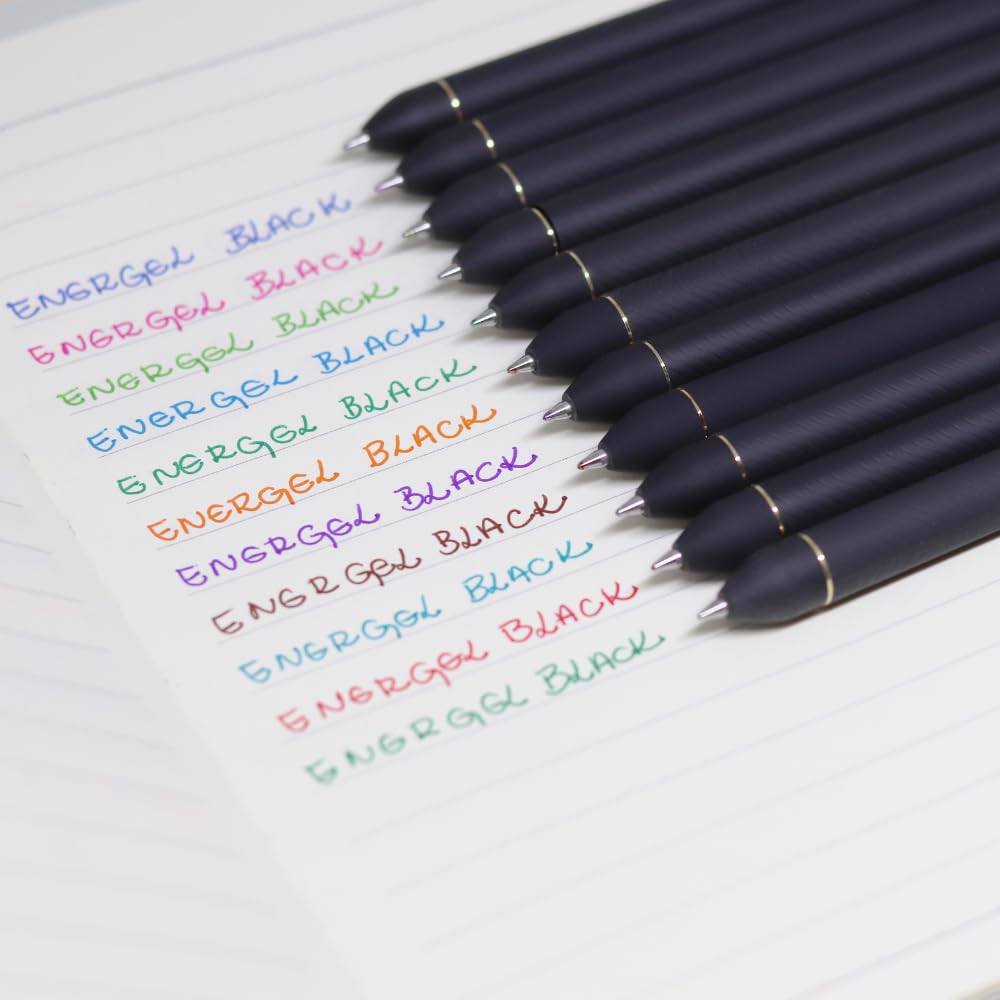 ENERGEL BLACK
ENERGEL BLACK
ENERGEL BLACK
ENERGEL BLACK
ENERGEL BLACK
ENERGEL BLACK
ENERGEL BLACK
ENERGEL BLACK
ENERGEL BLACK
ENERGEL BLACK
ENERGEL BLACK